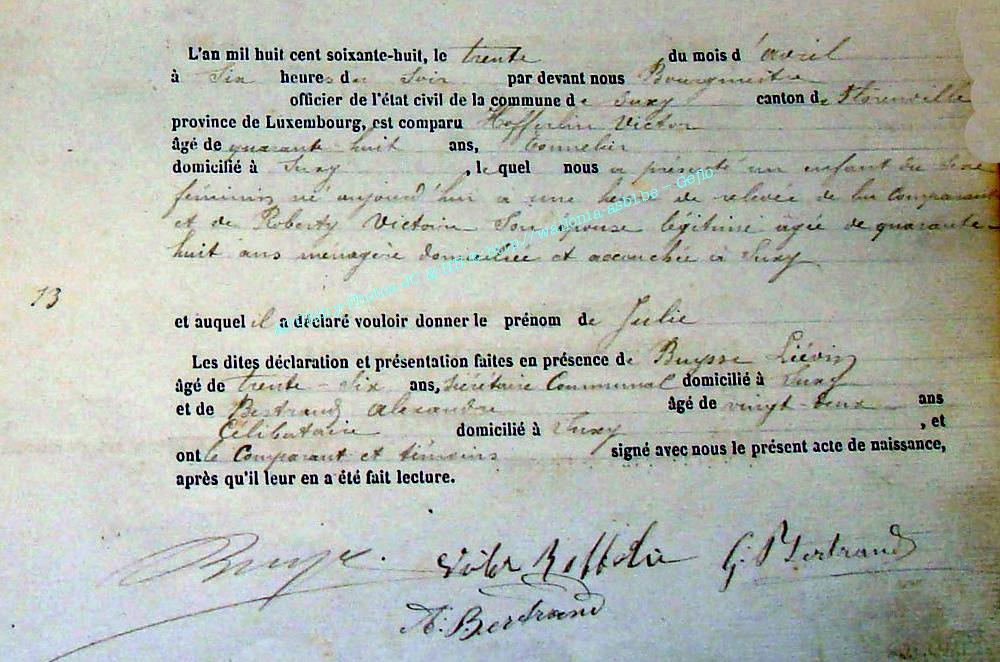 L'an mil huit cent soixante-huit, le trente du mois d'avril
à Six heures du Soir par devant nous Bourgmestre
officier de l'état civil de la commune de Suxy canton de Florenville
province de Luxembourg, est comparu Hofferlin Victor
âgé de quarante huit ans, Tonnelier
domicilié à Suxy, le quel nous a présenté un enfant du Sexe
féminin né aujourd'hui à une heure de relevée de lui Comparant
et de Roberty Victoire Son épouse légitime âgée de quarante-
huit ans ménagère domiciliée et accouchée à Suxy
13
et auquel il a déclaré vouloir donner le prénom de Julie
Les dites déclaration et présentation faites en présence de Buysse Liévin
âgé de trente-Six ans, Secrétaire Communal domicilié à Suxy
et de Bertrand Alexandre âgé de vingt-deux ans
Célibataire domicilié à Suxy, et
ont le Comparant et témoins signé avec nous le présent acte de naissance,
après qu'il leur en a été fait lecture.
Buysse Victor G. Bertrand
A. Bertrand
http://wallonia-asbl.be - Geflo